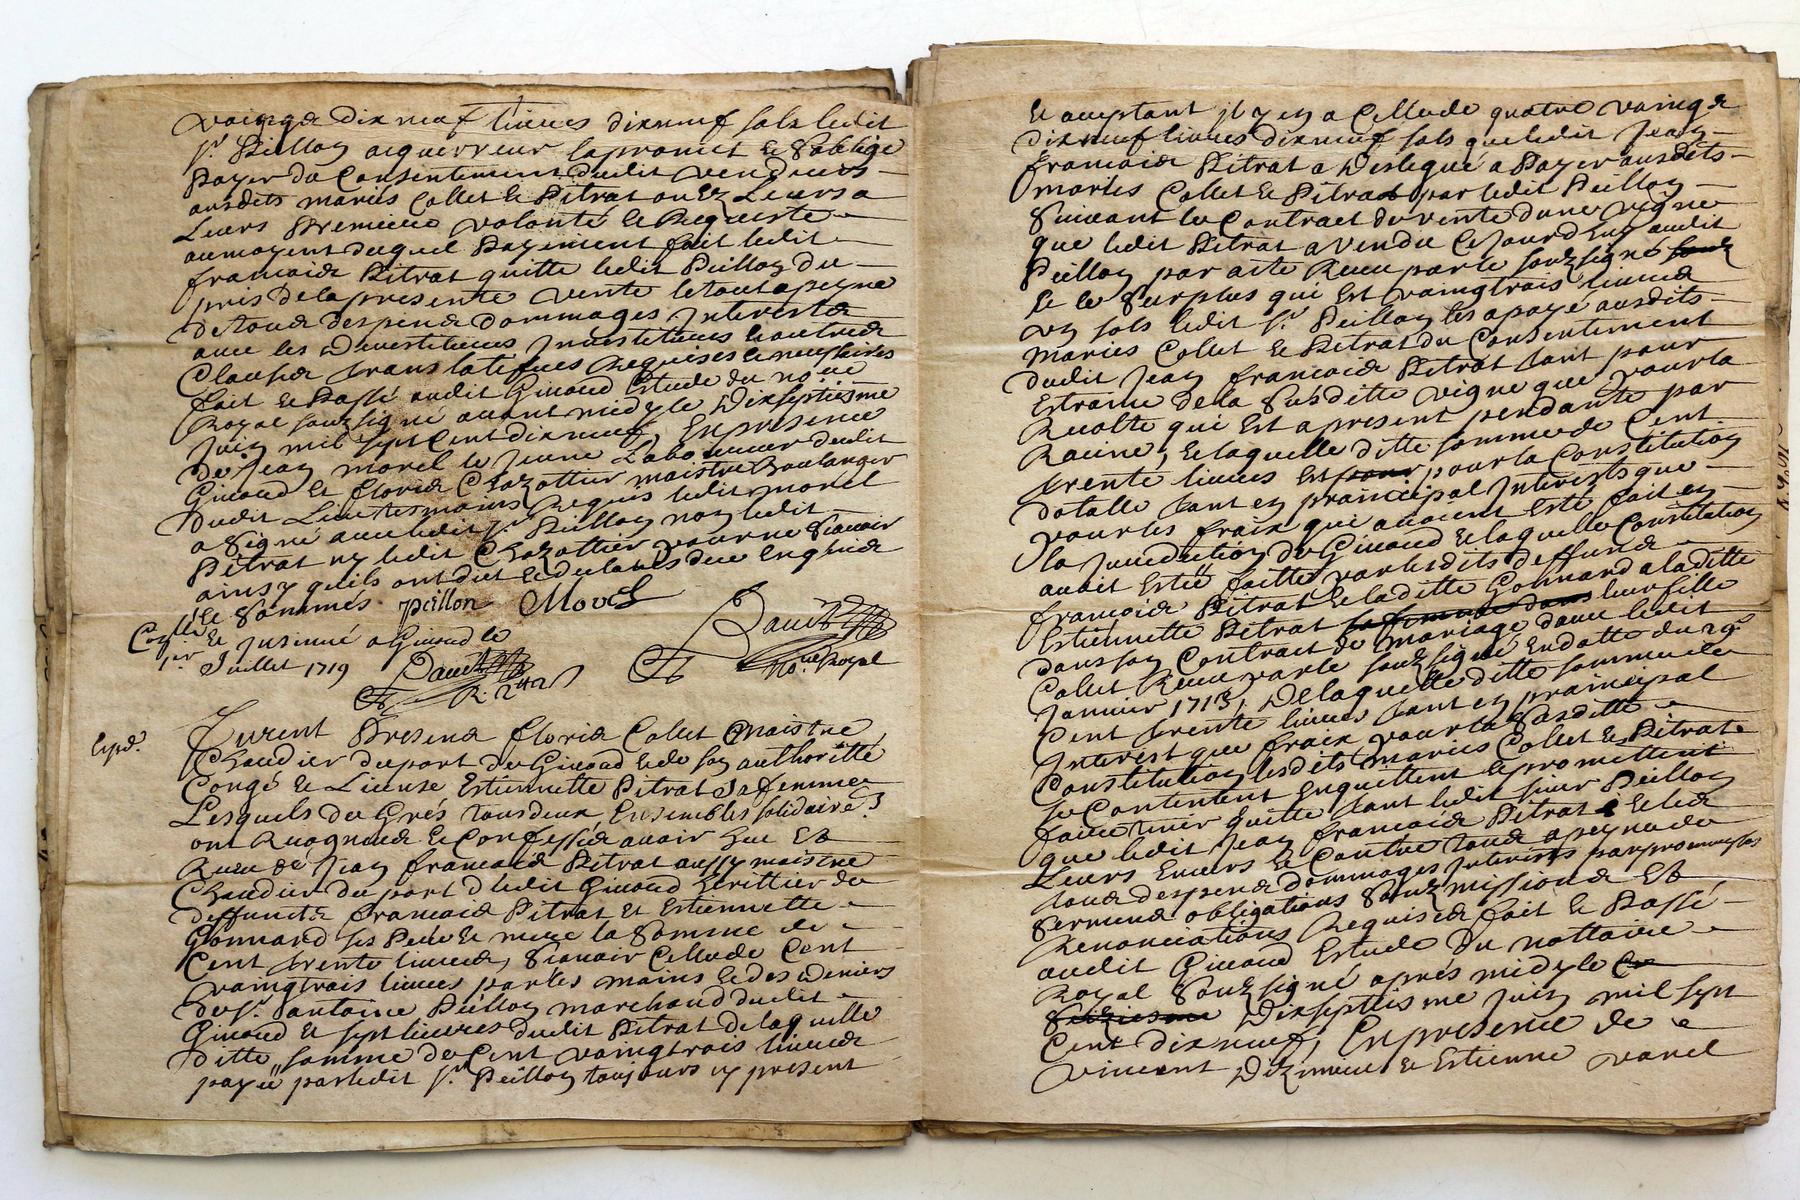 vaingt dix neuf livres dix neuf sols ledit
Sr. Peillon acquerreur la promet et s'oblige
payer du Consentement dudit vendeurs
ausdits mariés Collet et Pitrat ou ez Leurs a
Leurs Premiere volonté et Requiste
au moyent duquel Payement fait ledit
francois Pitrat quitte ledit Peillon du
pris de la presente vente le tout a peyne
de tous despens dommages Interests
avec les Devestitures Investitures et autres
Clauses translatifves Requises et necessaires
fait et Passé audit Givord Estude du nore
Royal souzsigné avant midy le Dixseptiesme
Juin mil sept Cent dix neuf, En presence
de Jean morel le Jeune Laboureur dudit
Givord et floris Chazottier maistre Boulanger
dudit Lieu tesmoins Requis ledit morel
a signé avec ledit Sr Peillon non ledit
Pitrat ny ledit Chazottier pour ne scavoir
ainsy quils ont dit et declarés deue Enquis
et sommés. peillon Morel
Collé et Insinué a Givord le
1er Juillet 1719
nore Royal
Expé.
Furent Presens floris Colet maistre
Chaudier du port de Givord et de son authoritté
Congé et License Estiennette Pitrat sa femme
Lesquels de Grés tous deux Ensembles solidaire.t
ont Recognus et Confessés avoir heu Et
Receu de Jean francois Pitrat aussy maistre
Chaudier du port dudit Givord herittier de
deffuncts francois Pitrat et Estiennette
Gonnard ses Pere et mere la Somme de
Cent trente livres, scavoir Celle de Cent
vaingtrois livres par les mains et des deniers
de Sr. Antoine Peillon marchand dudit
Givord et sept livres dudit Pitrat de laquelle
ditte somme de Cent vaingtrois livres
payée par ledit Sr. Peillon toujours cy present
et aceptant il y en a Celle de quatre vaingt
dix neuf livres dix neuf sols que ledit Jean
francois Pitrat a Deslegué a Payer ausdits
mariés Collet et Pitrat par ledit Peillon
Suivant le Contract de vente dune vigne
que ledit Pitrat a vendu Ce Jourdhuy audit
Peillon par acte Receu par le souzsigné
Et le Surplus qui Est vaingtrois livres
un sols ledit Sr. Peillon les a payé ausdits
mariés Collet et Pitrat du Consentement
dudit Jean francois Pitrat tant pour
Estraine de la Susditte vigne que pour la
Recolte qui Est a present pendante par
Racine, et laquelle ditte somme de Cent
trente livres Est pour la Constitution
dotalle tant en principal Interests que
pour les fraix qui avoient esté fait en
la Juridiction de Givord et laquelle Constitution
avoit Estée faitte par lesdits deffuns
francois Pitrat et laditte Gonnard a laditte
Estiennette Pitrat leur fille
dans son Contract de mariage d'avec ledit
Colet Receu par le souzsigné En datte du 29e
Janvier 1713, De laquelle ditte somme de
Cent trente livres tant en principal
Interest que fraix pour la Susditte
Constitution lesdits mariés Collet et Pitrat
se Contentent En quittent et promettent
faire tenir quitte tant ledit sieur Peillon
que ledit Jean francois Pitrat et les
Leurs Envers et Contre tous a peyne de
tous despens dommages Interests par promesses
Sermens obligations Souzmissions Et
Renonciations Requises fait et Passé
audit Givord Estude du nottaire
Royal Souzsigné aprés midy le
Dixseptiesme Juin mil sept
Cent dix neuf, En presence de
Vincent Dezimeux et Estienne varel